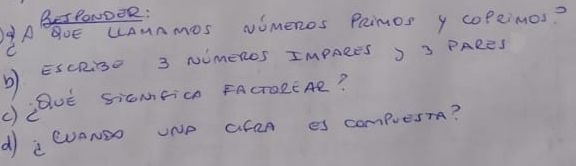 RESPONDER:
a) ¿A QUE LLAMAMOS NÚMEROS PRIMOS Y COPRIMOS?
b) ESCRIBO 3 NÚMEROS IMPARES Y 3 PARES
c) ¿QUÉ SIGNIFICA FACTOREAR?
d) ¿CUANDO UNA CIFRA ES COMPUESTA?